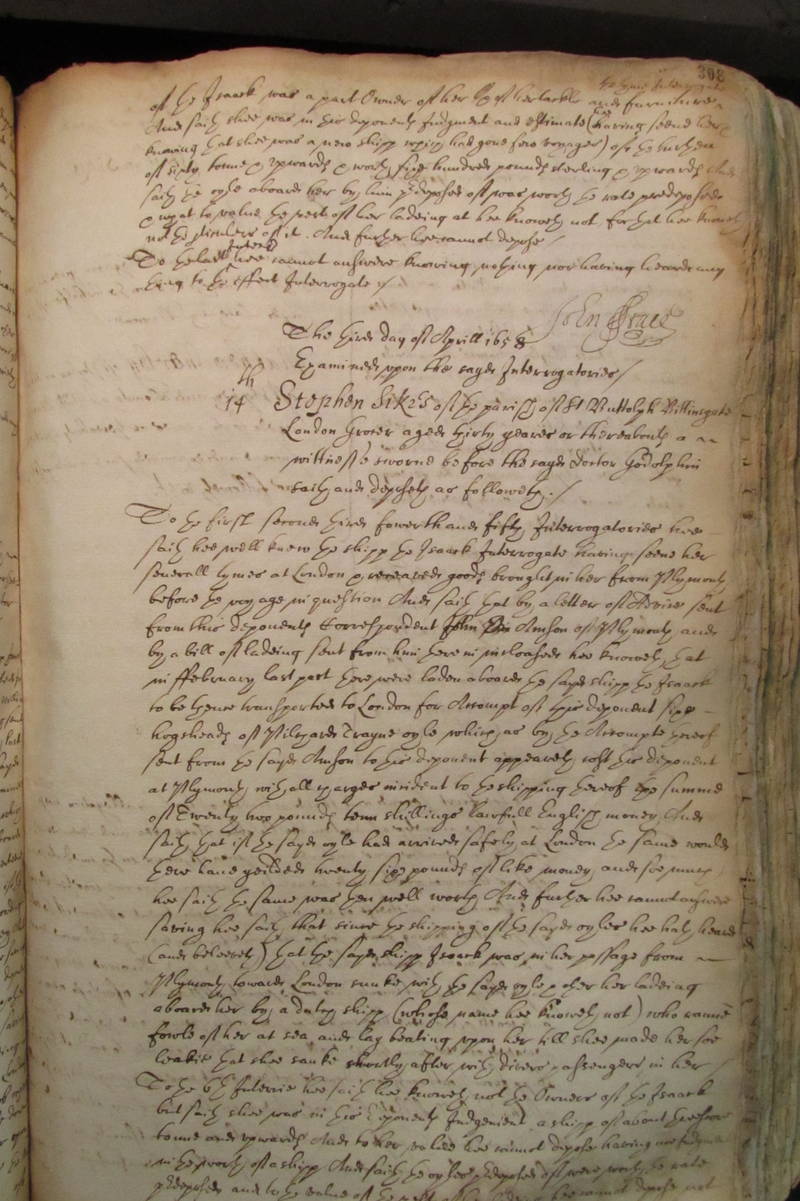 308
of the Isaack was a part Owner of her & of her tackle and furniture
And saith shee was in his deponents Judgment and estimate (having seene her
knowing that shee was a new shipp which had gone few voyages)
of sixty tonne & upwards & worth six hundred pounds sterling & upwards And
saith the oyle aboard her by him predeposed of was worth the rate predeposed
& what to value the rest of her ladeing at hee knoweth not for that hee knoweth
not the of it. And further hee cannot depose /
To the last Interr hee cannot answere knowing nothing nor having heard any
thing to the effect Interrogate /
John
The third day of Aprill 1658
Examined upon the sayd Interrogatories /
14th Stephen Sikes of the parish of St Buttolph Billinsgate
London Grocer aged thirty yeares or thereabouts a
wittnesse sworne before the sayd Doctor Godolphin
saith and deposeth as followeth. /
To the first second third fowerth and fifth Interrogatories hee
saith hee well knew the shipp the Isaack Interrogate having seene her
severall tymes at London & receaved goods brought in her from Plymouth
before the voyage in question And saith that by a letter of Advice sent
from this deponents Correspondent John Amson of Plymouth and
by a bill of ladeing sent from him there in inclosed hee knoweth that
in ffebruary last past there were laden aboard the sayd shipp the Isaack
to be thence transported to London for Accompt of this deponent six
hogsheads of Pilchard Trayne oyle which as by the Accompte thereof
sent from the sayd Amson to this deponent appeareth cost this deponent
at Plymouth with all charges incident to the shipping thereof the summe
of Twenty two pounds tenn shillings lawfull English money And
saith that if the sayd oyle had arrived safely at London the same would
there have yeilded twenty six pounds of like money and soe much
hee saith the same was then well worth And further hee cannot answere
saving hee saith that since the shipping of the sayd oyles hee hath heard
(and beleeveth) that the sayd shipp Isaack was in her passage from
Plymouth towards London sunke with the sayd oyle & other her ladeing
aboard her by a dutch shipp (whose name hee knoweth not) who came
fowle of her at sea and lay beating upon her till shee made her soe
leakie that shee sanke shortly after with divers passengers in her /
To the 6th Interrie hee saith hee knoweth not the Owners of the Isaack
but saith shee was in his deponents Judgement a shipp of about threescore
tonne and upwards And to her value hee cannot depose having noe
in the worth of a shipp And saith the oyles predeposed of were worth the rate
predeposed and to the value of the rest of hee cannot depose not